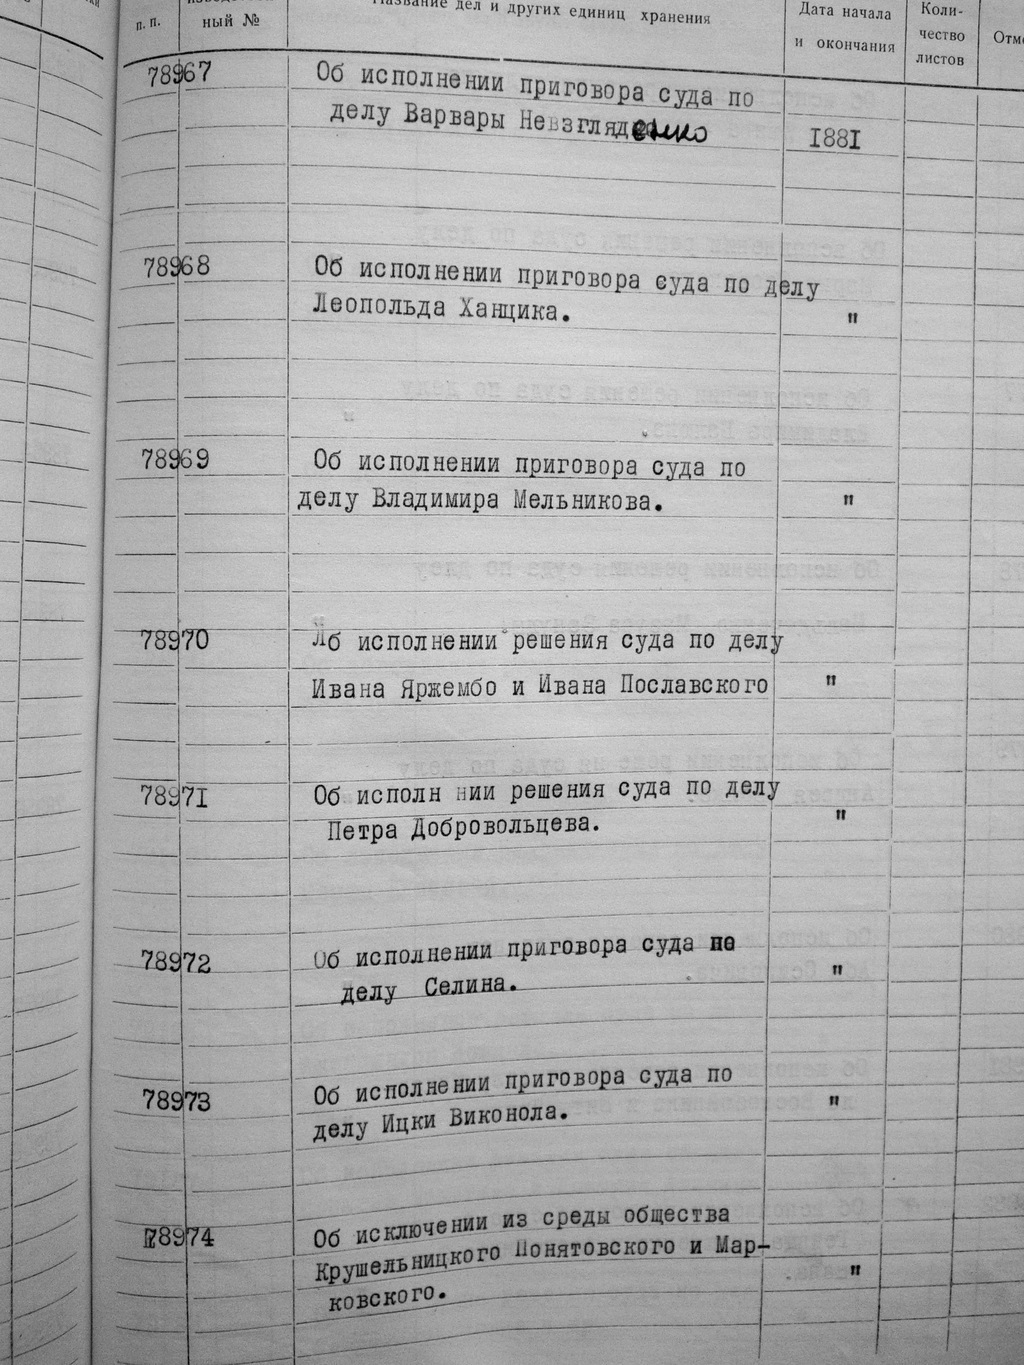 п. п.
ный №
Название дел и других единиц хранения
Дата начала
и окончания
Коли-
чество
листов
78967
Об исполнении приговора суда по
делу Варвары Невзгляденко
1881
78968
Об исполнении приговора суда по делу
Леопольда Ханцика.
"
78969
Об исполнении приговора суда по
делу Владимира Мельникова.
"
78970
Лб исполнении решения суда по делу
Ивана Яржембо и Ивана Пославского
"
78971
Об исполн нии решения суда по делу
Петра Добровольцева.
"
78972
Об исполнении приговора суда по
делу Селина.
"
78973
Об исполнении приговора суда по
делу Ицки Виконола.
"
78974
Об исключении из среды общества
Крушельницкого Понятовского и Мар-
ковского.
"